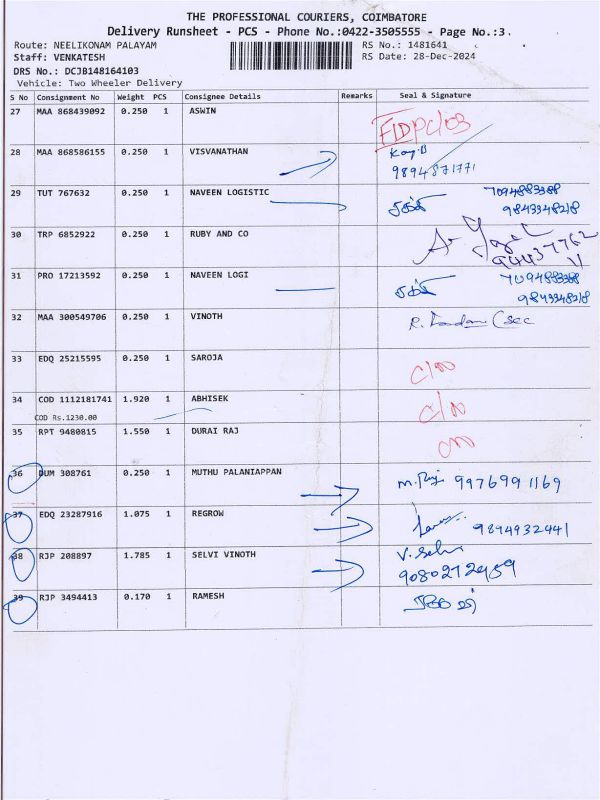 THE PROFESSIONAL COURIERS, COIMBATORE
Delivery Runsheet - PCS - Phone No.:0422-3505555 - Page No.:3.
Route: NEELIKONAM PALAYAM RS No.: 1481641
Staff: VENKATESH RS Date: 28-Dec-2024
DRS No.: DCJB148164103
Vehicle: Two Wheeler Delivery
S No Consignment No Weight PCS Consignee Details Remarks Seal & Signature
27 MAA 868439092 0.250 1 ASWIN
28 MAA 868586155 0.250 1 VISVANATHAN
9894871771
29 TUT 767632 0.250 1 NAVEEN LOGISTIC 7094883388
சக்தி 9843348218
30 TRP 6852922 0.250 1 RUBY AND CO
31 PRO 17213592 0.250 1 NAVEEN LOGI 7094883388
சக்தி 9843348218
32 MAA 300549706 0.250 1 VINOTH
33 EDQ 25215595 0.250 1 SAROJA
34 COD 1112181741 1.920 1 ABHISEK
COD Rs.1230.00
35 RPT 9480815 1.550 1 DURAI RAJ
36 DUM 308761 0.250 1 MUTHU PALANIAPPAN 9976991169
37 EDQ 23287916 1.075 1 REGROW 9894932441
38 RJP 208897 1.785 1 SELVI VINOTH V. Selvi
9080272959
39 RJP 3494413 0.170 1 RAMESH